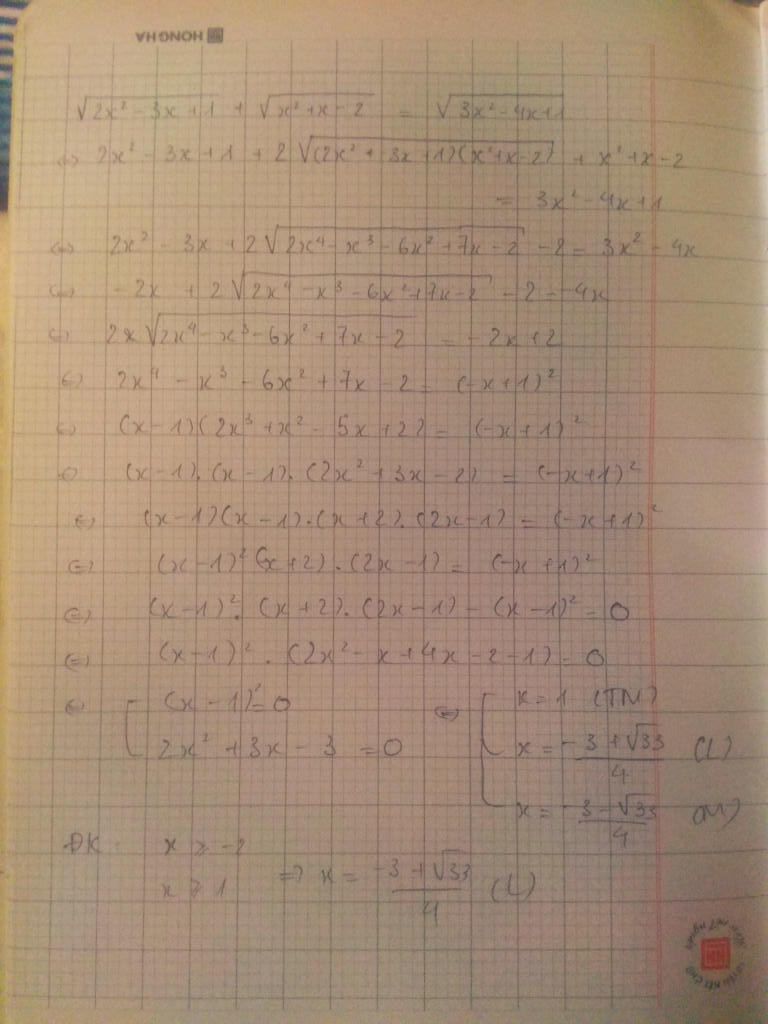 HONG HA
√(2x² - 3x + 1) + √(x² + x - 2) = √(3x² - 4x + 1)
(=) 2x² - 3x + 1 + 2√((2x² + -3x + 1)(x² + x - 2)) + x² + x - 2
= 3x² - 4x + 1
(=) 2x² - 3x + 2√(2x⁴ - x³ - 6x² + 7x - 2) - 2 = 3x² - 4x
(=) - 2x + 2√(2x⁴ - x³ - 6x² + 7x - 2) - 2 = -4x
(=) 2x√(2x⁴ - x³ - 6x² + 7x - 2) = - 2x + 2
(=) 2x⁴ - x³ - 6x² + 7x - 2 = (-x + 1)²
(=) (x - 1)(2x³ + x² - 5x + 2) = (-x + 1)²
(x - 1).(x - 1).(2x² + 3x - 2) = (-x + 1)²
(=) (x - 1)(x - 1).(x + 2).(2x - 1) = (-x + 1)²
(=) (x - 1)² (x + 2).(2x - 1) = (-x + 1)²
(=) (x - 1)².(x + 2).(2x - 1) - (x - 1)² = 0
(=) (x - 1)².(2x² - x + 4x - 2 - 1) = 0
(=) [ (x - 1)² = 0 (=) [ x = 1 (TM)
2x² + 3x - 3 = 0 x = (-3 + √33)/4 (L)
x = (-3 - √33)/4
ĐK x ≥ -2
x ≥ 1 => x = (-3 + √33)/4 (L)